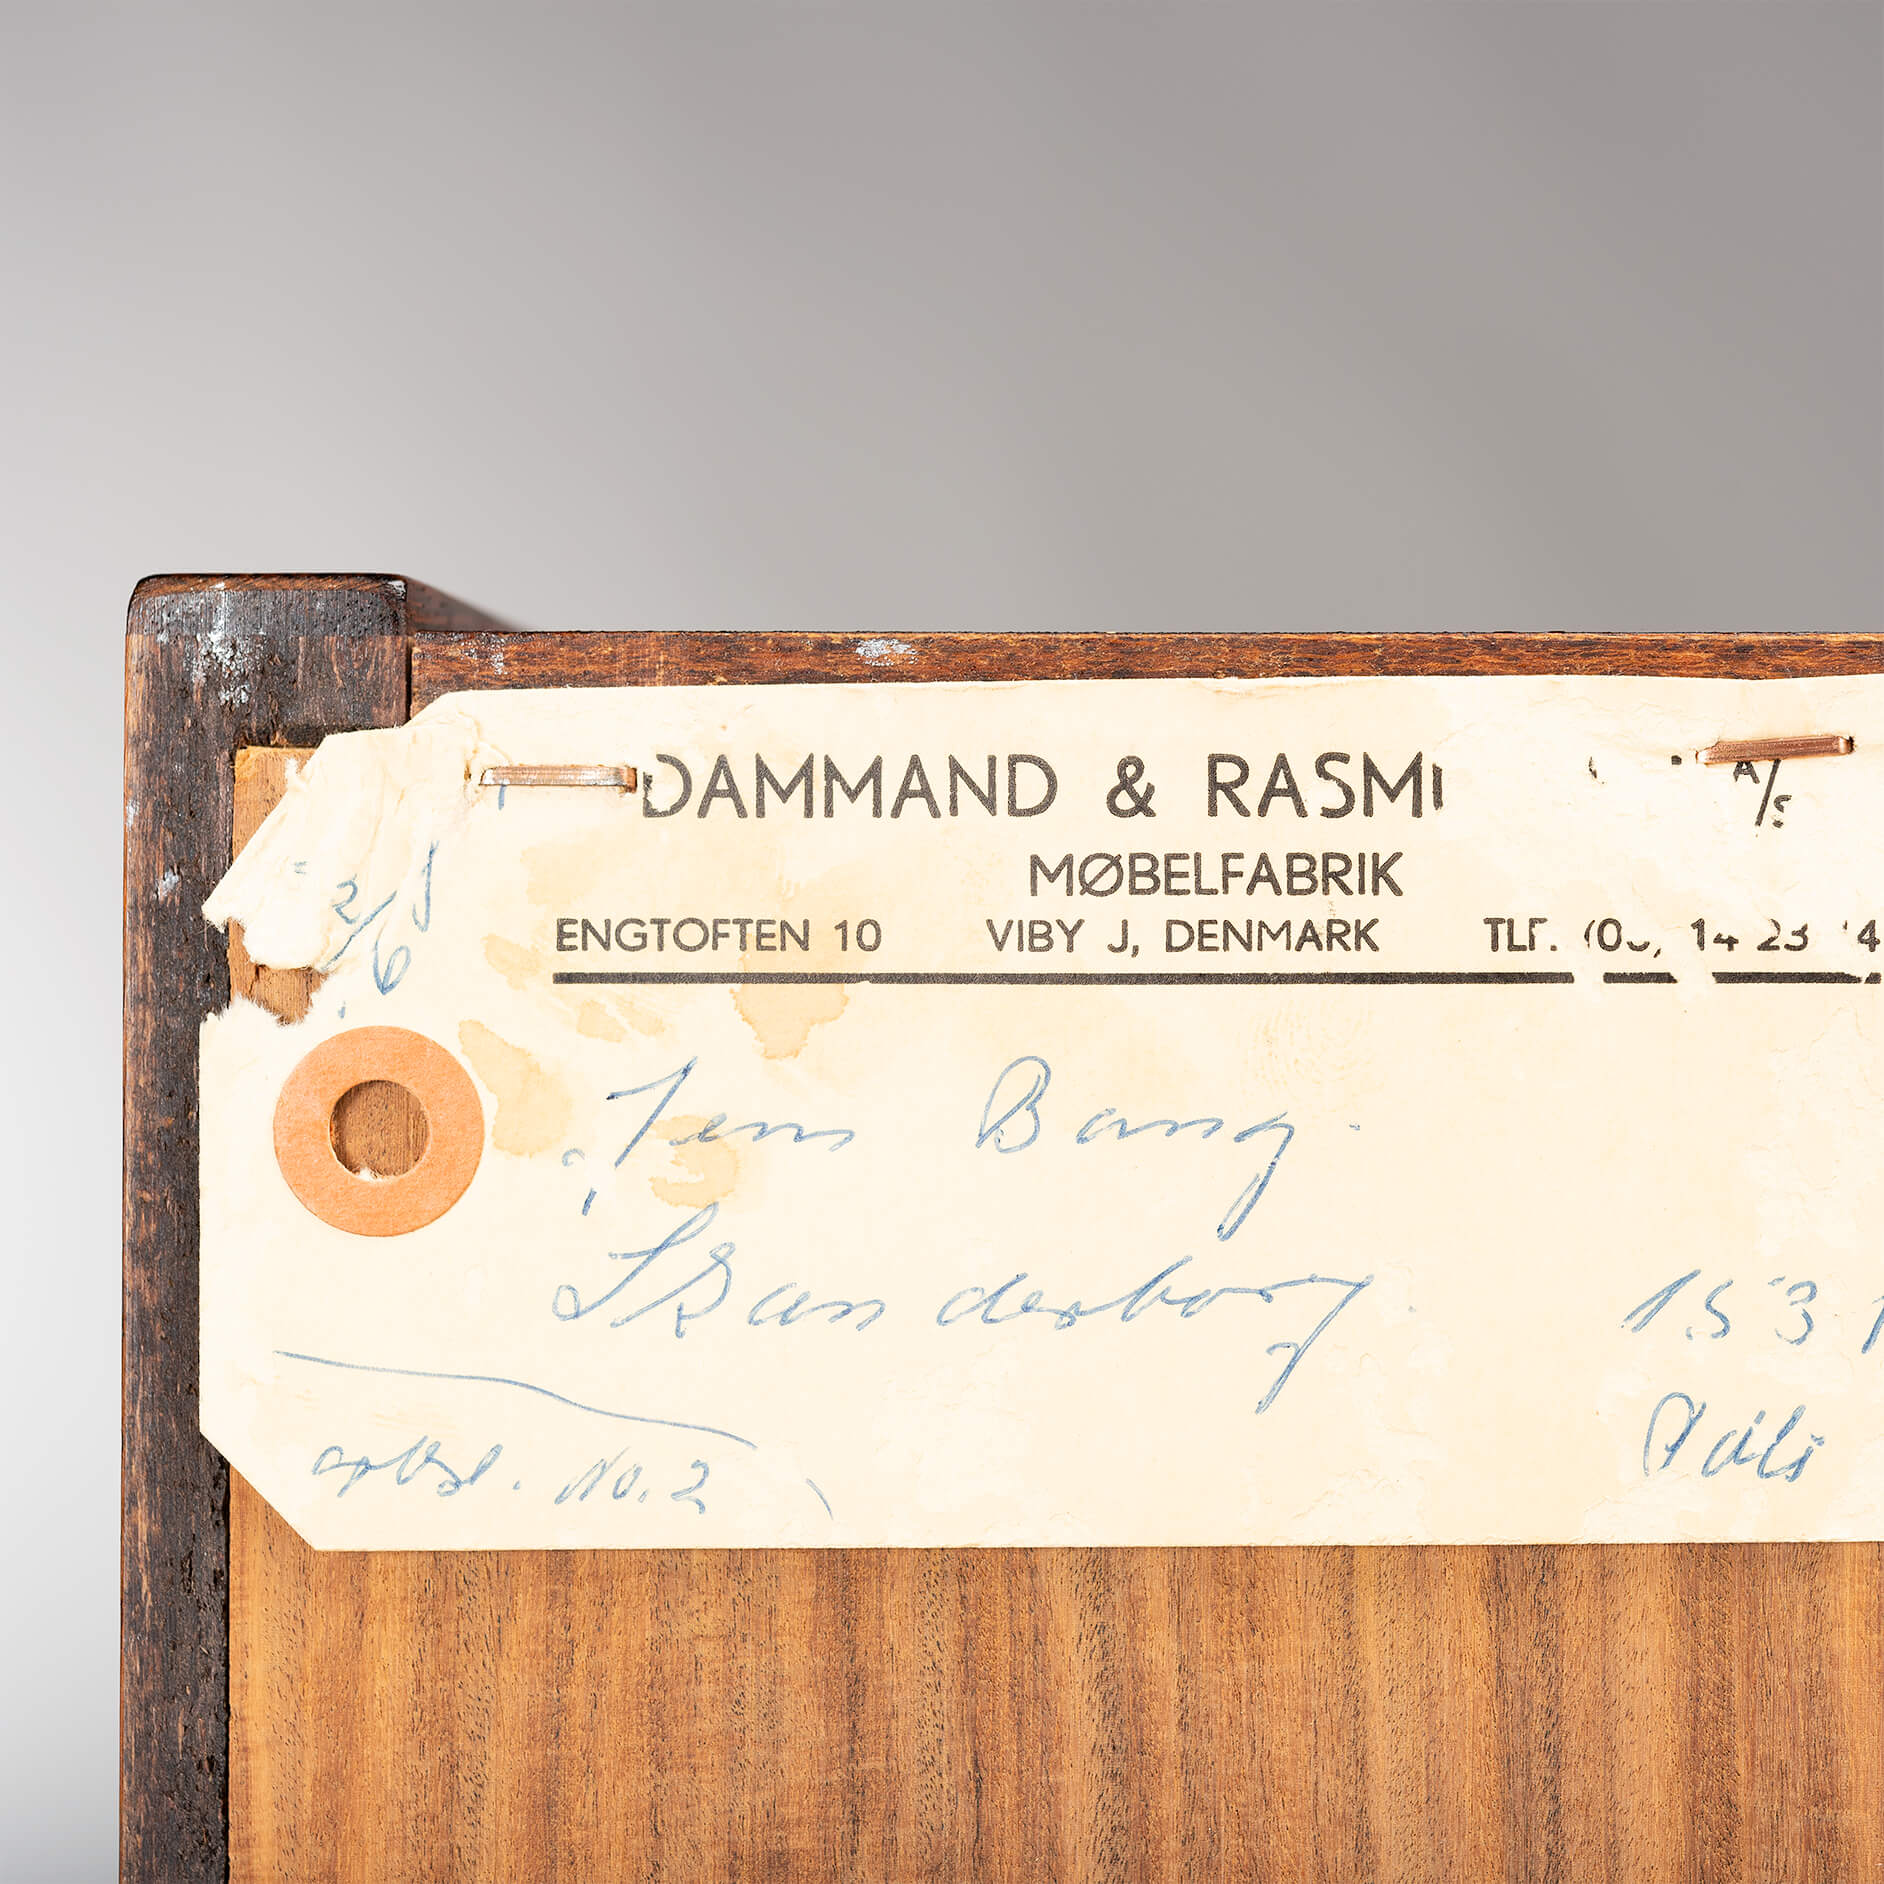 DAMMAND & RASM A/S
MØBELFABRIK
ENGTOFTEN 10 VIBY J, DENMARK TLF. 14 23
2/6
Jens Bang.
Skanderborg. 153
No. 2